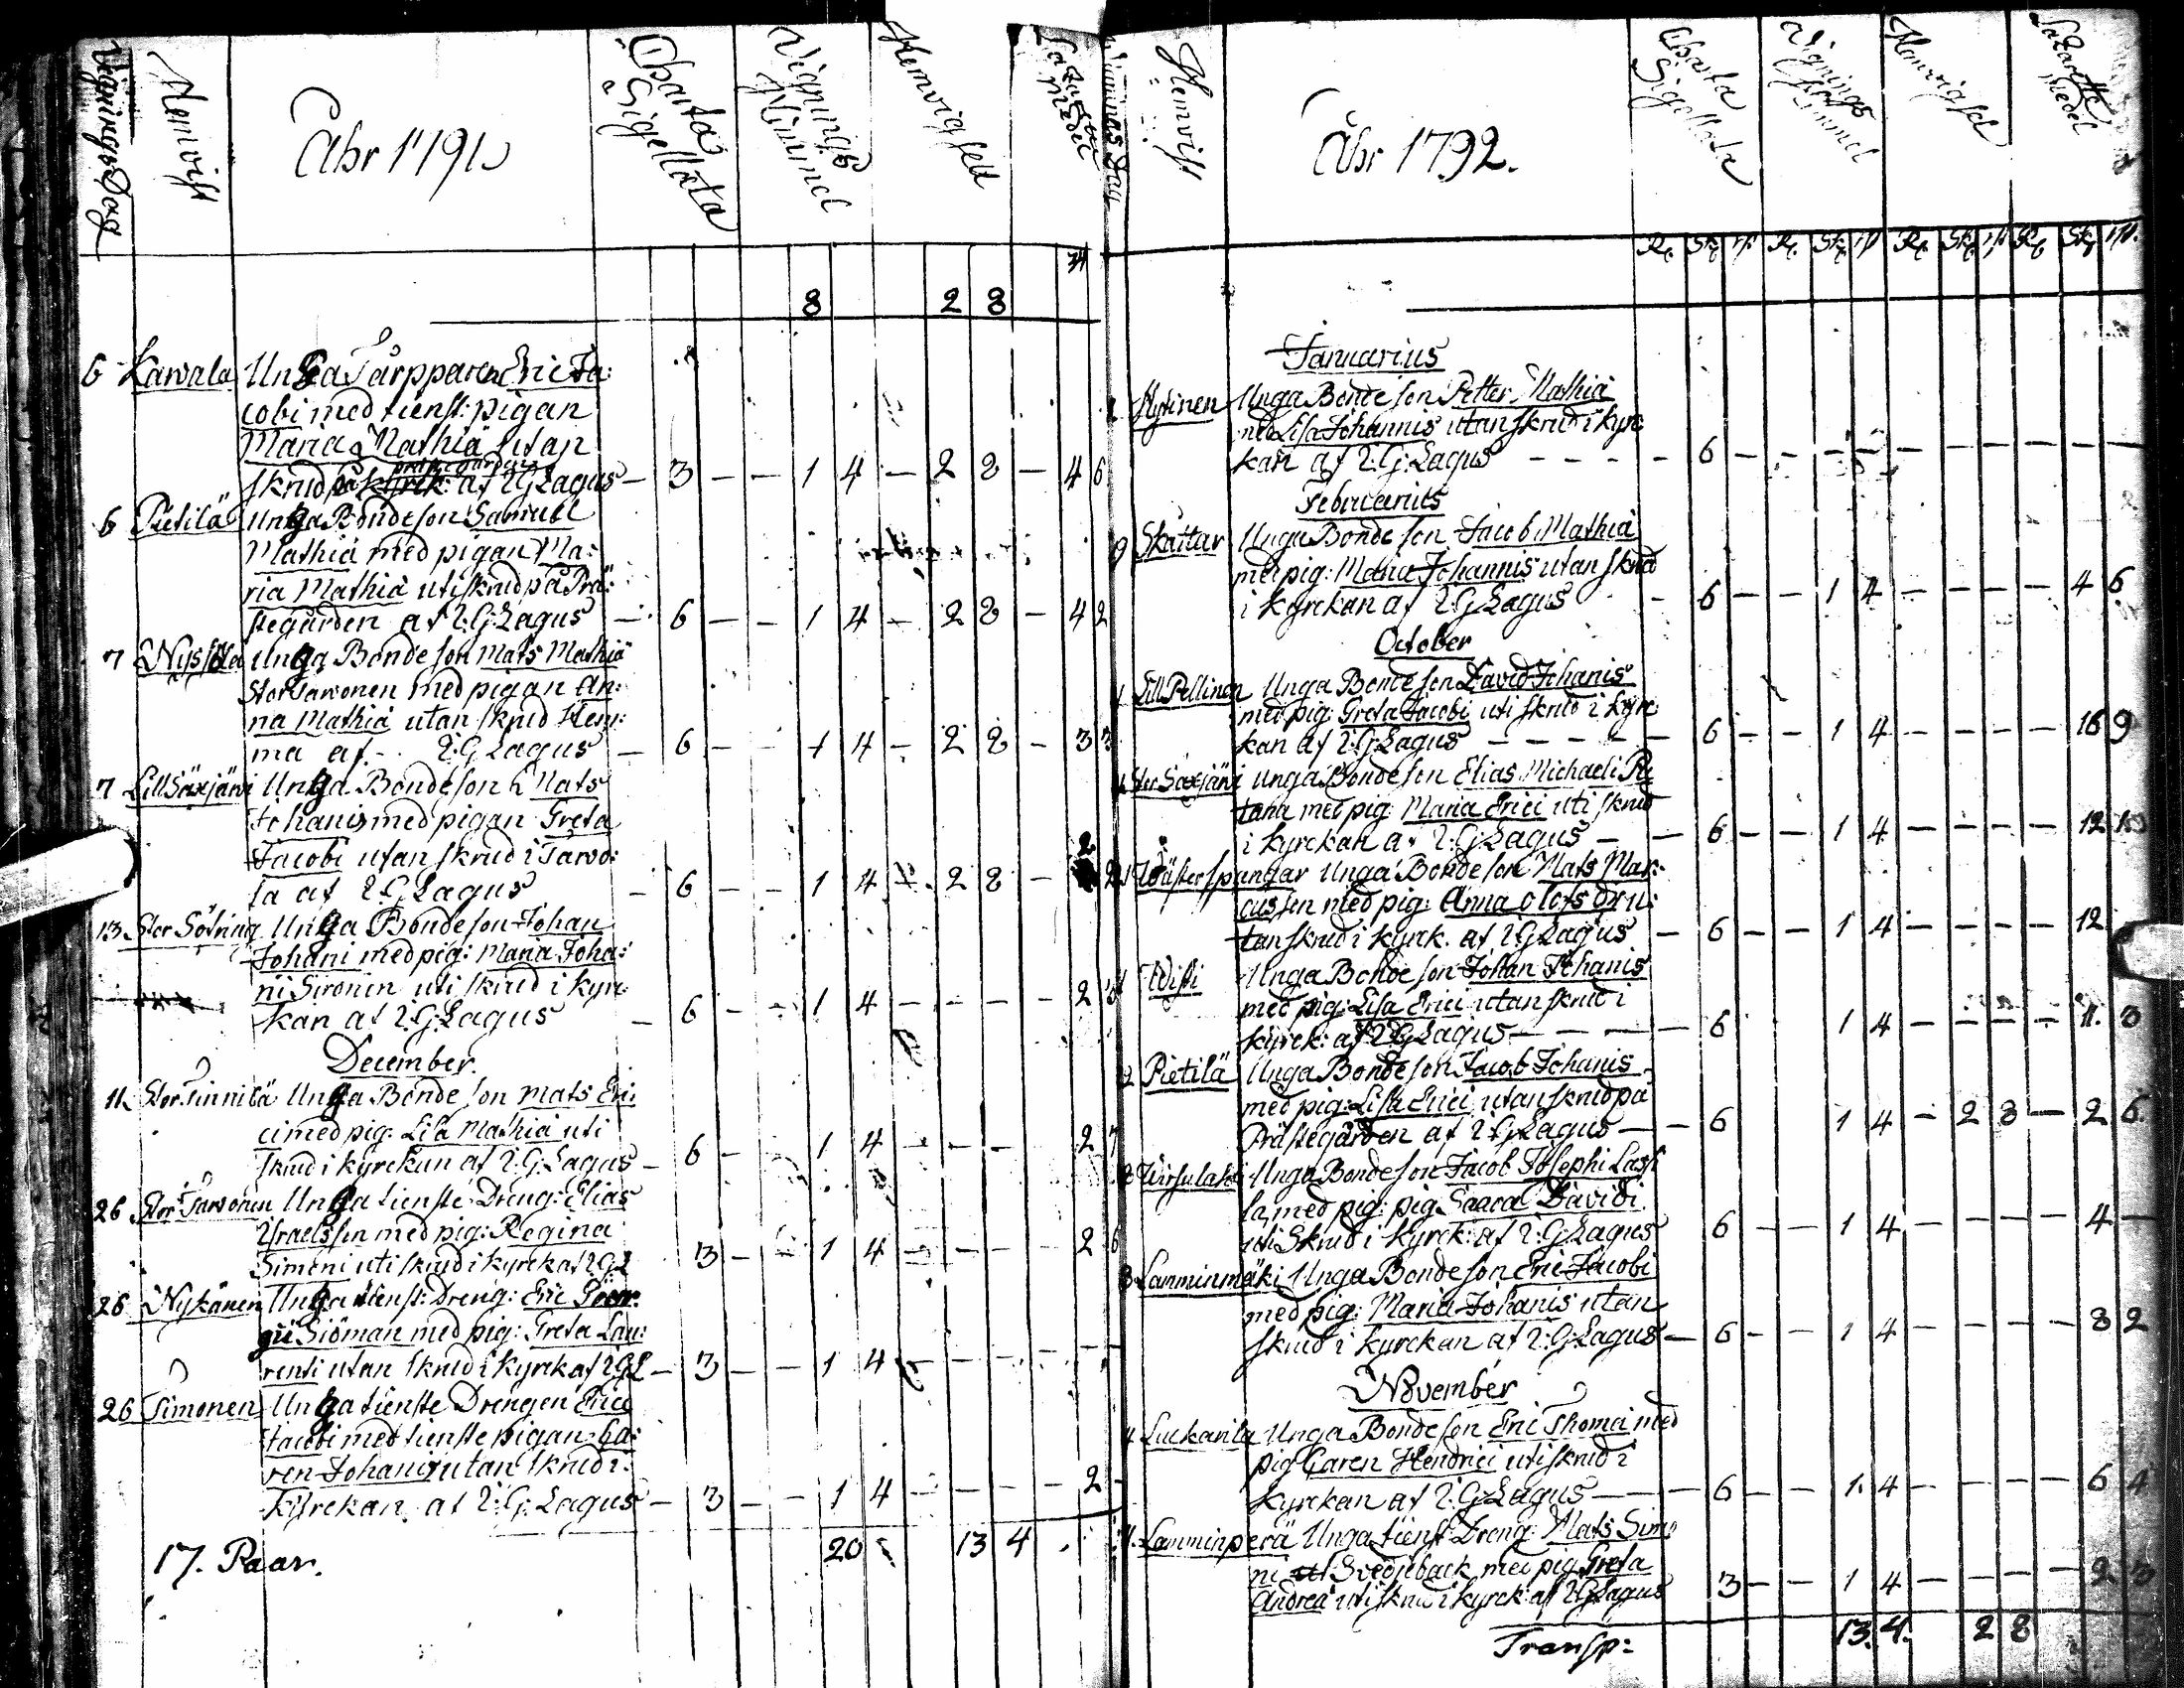 Vignings Dag
Hemvist
Åhr 1791.
Charta Sigellata
Vignings Himmel
Hemvigsell
Lazaretts medel
8 2 8
6 Kawala Unga Torpparen Eric Ja:
cobi med tienst: pigan
Maria Mathiä utan
skrud på af I:G:Lagus — 3 — — 1 4 — 2 8 — 4 6
6 Pietilä Unga Bondeson Samuel
Mathiä med pigan Ma:
ria Mathiä uti skrud på Prä:
stegården af I:G:Lagus — 6 — — 1 4 — 2 8 — 4 2
7 Nissola Unga Bondeson Mats Mathiä
Storsavonen med pigan An:
na Mathiä utan skrud Hem:
ma af I:G:Lagus — 6 — — 1 4 — 2 8 — 3 3
7 Lill Säxjärvi Unga Bondeson Mats
Johanis med pigan Greta
Jacobi utan skrud i
la af I:G:Lagus — 6 — — 1 4 — 2 8 — 2
13 Stor Sötring Unga Bondeson Johan
Johani med pig: Maria Joha:
ni Sironen uti skrud i kyrc
kan af I:G:Lagus — 6 — — 1 4 — — — — 2
December.
11. Stor Finnilä Unga Bonde son Mats Eri
ci med pig: Lisa Mathiä uti
skrud i kyrckan af I:G:Lagus — 6 — 1 4 — — — 2 7
26 Stor Tarvonen Unga tienste Dreng: Elias
Israelsson med pig: Regina
Simoni uti skrud i kyrck af I G L 3 — — 1 4 — — — — 2 6
26 Nykänen Unga tienst: Dreng: Eric Geor:
gii Siöman med pig: Greta Lau:
renti utan skrud i kyrck af I G L — 3 — — 1 4 — — — —
26 Simonen Unga tienste Drengen Eric
Jacobi med tienste pigan Ca:
ren Johanis utan skrud i
kyrckan af I:G:Lagus — 3 — — 1 4 — — — — 2 —
17. Paar. 20 13 4
Vignings Dag
Hemvist
Åhr 1792.
Charta Sigellata
Vignings Himmel
Hemvigsel
Lazaretts medel
R. Sk. rst R. Sk. rst R. Sk. rst R. Sk. rst.
Januarius
Hytinen Unga Bonde son Petter Mathiä
med Lisa Johannis utan skrud i kyrc
kan af I:G:Lagus — — — — 6 — — — — — — — — —
Februarius
9 Skattar Unga Bonde son Jacob Mathiä
med pig: Maria Johannis utan skrud
i Kyrckan af I:G:Lagus — 6 — — 1 4 — — — — 4 6
October
Lill Pellinen Unga Bonde son David Johanis
med pig: Greta Jacobi uti skrud i kyrc
kan af I:G:Lagus — — — — — 6 — — 1 4 — — — — 16 9
Stor Saxjärvi Unga Bonde son Elias Michaeli
med pig: Maria Erici uti skrud
i kyrckan af I:G:Lagus — — 6 — — 1 4 — — — — 12
Wästerspangar Unga Bonde son Mats Mar:
cusson med pig: Anna Olofs dr u:
tan skrud i kyrck. af I:G:Lagus — 6 — — 1 4 — — — — 12
Wisti Unga Bonde son Johan Johanis
med pig: Lisa Erici utan skrud i
kyrck: af I:G:Lagus — — — — 6 1 4 — — — — 11. 3
2 Pietilä Unga Bonde son Jacob Johanis
med pig: Lisa Erici utan skrud på
Prästegården af I:G:Lagus — — 6 1 4 — 2 8 — 2 6.
Unga Bonde son Jacob Josephi Lassi
la, med pig: pig Saara Davidi
uti Skrud i Kyrck: af I:G:Lagus 6 — — 1 4 — — — — 4 —
8 Lamminmäki Unga Bonde son Eric Jacobi
med pig: Maria Johanis utan
skrud i kyrckan af I:G:Lagus — 6 — — 1 4 — — — — 8 2
November
4 Luckarila Unga Bonde son Eric Thomæ med
pig Caren Hendrici uti skrud i
Kyrckan af I:G:Lagus — — — 6 — — 1. 4 — — — — 6 4
Lamminperä Unga tienst Dreng: Mats Simo
ni Svedjeback med pig Greta
Andreæ uti skrud i kyrck: af I:G:Lagus 3 — — 1 4 — — — — 2 3
Transp: 13. 4. 2 8